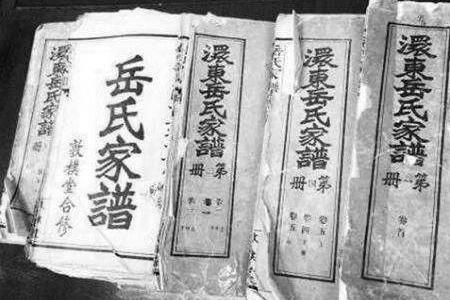 澴東岳氏家譜
第 冊
卷首
澴東岳氏家譜
第四冊
卷五
卷四
卷五
澴東岳氏家譜
第 冊
岳氏家譜
敦樸堂合修
岳氏家譜
冊